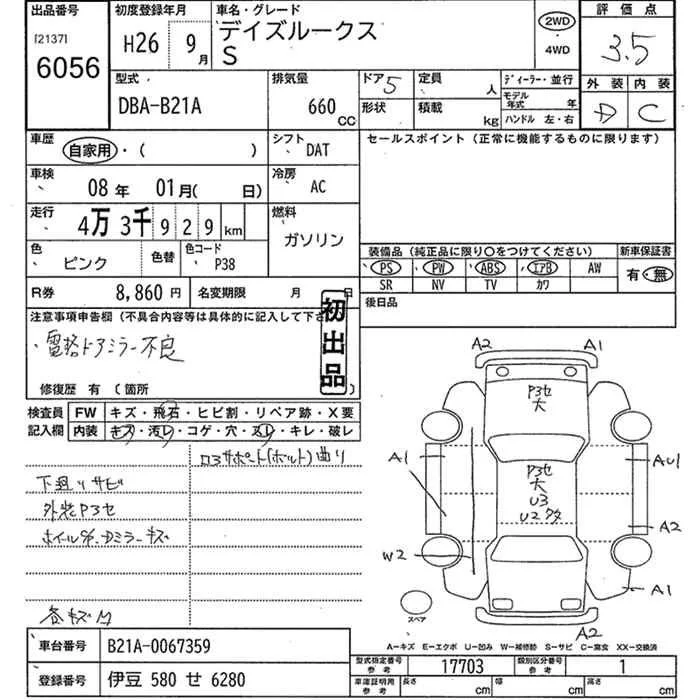 出品番号
[2137]
6056
初度登録年月
H26 9月
車名・グレード
デイズルークス
S
2WD
4WD
評価点
3.5
型式
DBA-B21A
排気量
660 CC
ドア 5
形状
定員 人
積載 kg
ディーラー・並行
モデル年式 年
ハンドル 左・右
外装 内装
D C
車歴
自家用・( )
シフト
DAT
セールスポイント(正常に機能するものに限ります)
車検
08年 01月( 日)
冷房
AC
走行
4万 3千 9 2 9 km
燃料
ガソリン
色
ピンク
色替
色コード
P38
装備品(純正品に限り○をつけてください)
新車保証書
PS PW ABS エアB AW
SR NV TV カワ
有・無
R券
8,860 円
名変期限 月 日
後日品
注意事項申告欄(不具合内容等は具体的に記入して下さ
初出品
・電格ドアミラー不良
修復歴 有 (箇所
検査員
記入欄
FW キズ・飛石・ヒビ割・リペア跡・X要
内装 キズ・汚レ・コゲ・穴・スレ・キレ・破レ
ロアサポート(ボルト)曲り
下廻りサビ
A2 A1
P3セ
大
A1
P3セ
大
U3
U2
AU1
A2
W2
A1
スペア
A2
A-キズ E-エクボ U-凹み W-補修跡 S-サビ C-腐食 XX-交換済
車台番号
B21A-0067359
登録番号
伊豆 580 せ 6280
型式指定番号
参考
17703
類別区分番号
参考
1
車庫証明用
参考
長さ cm
幅 cm
高さ cm